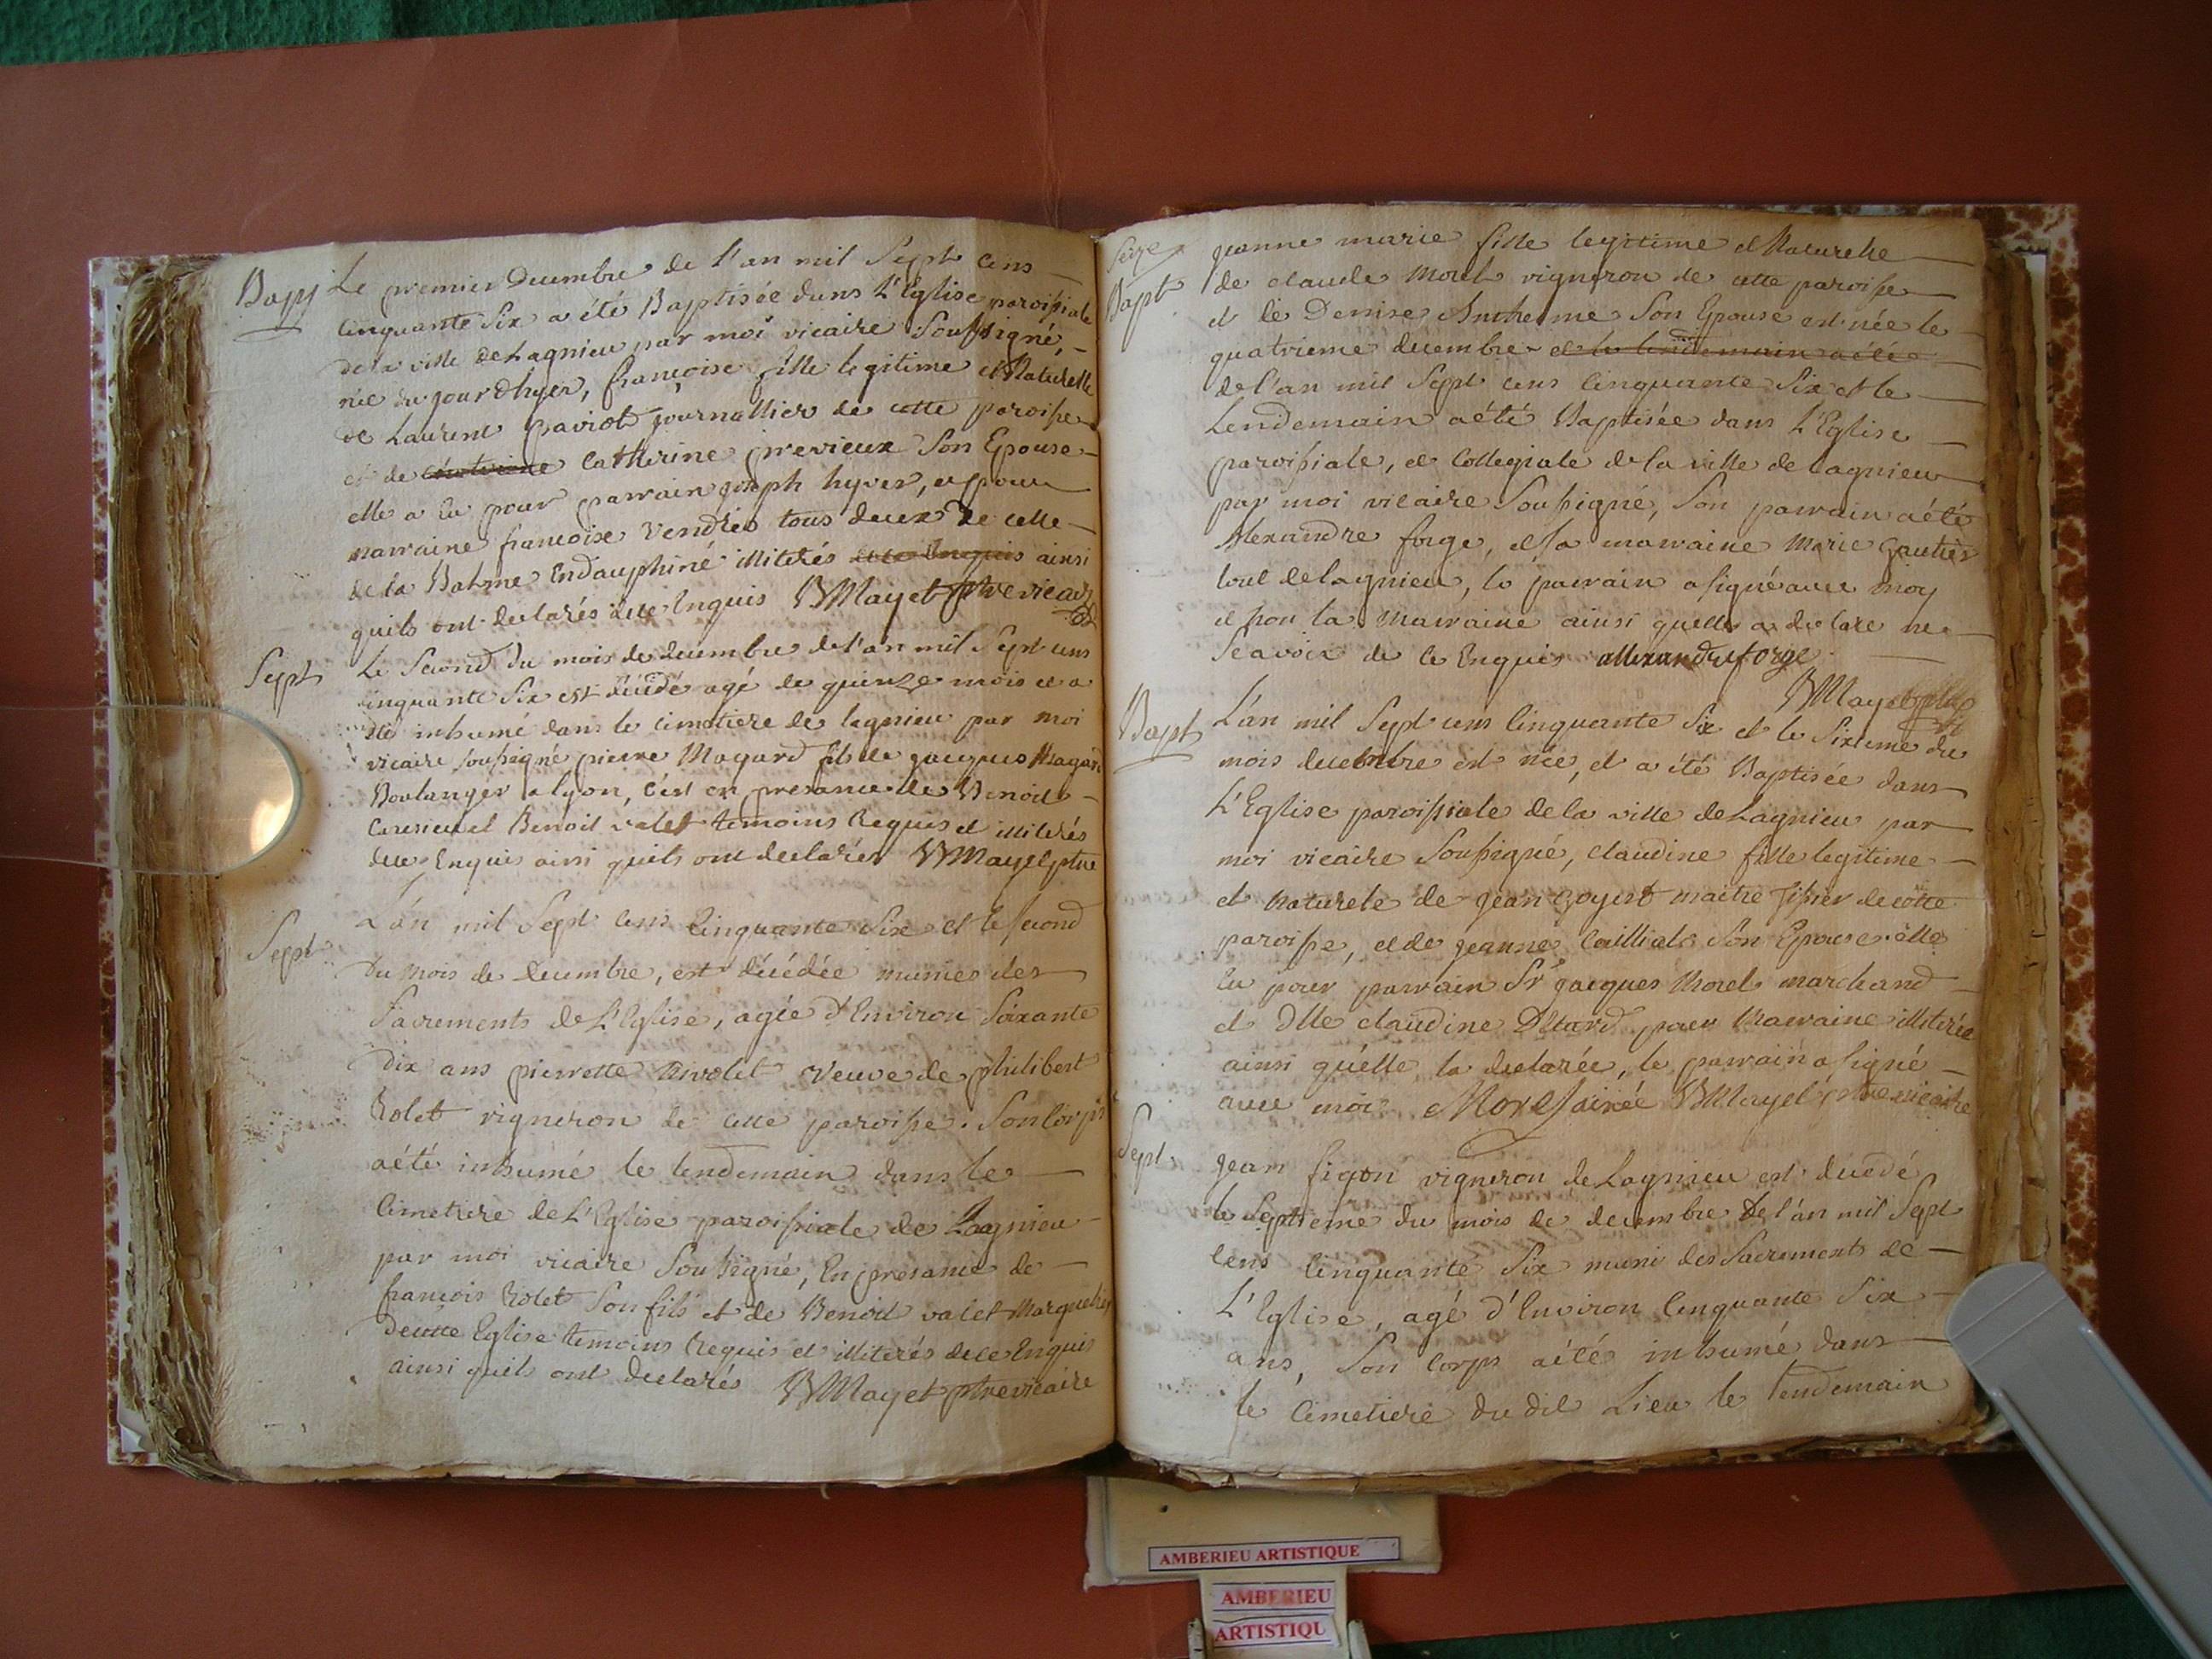 Bapt
Le premier Decembre de l'an mil Sept Cens
Cinquante Six a été Baptisée dans L'Eglise paroissiale
de la ville de Lagnieu par moi vicaire Soussigné,
née du jour d'hyer, françoise fille legitime et Naturelle
de Laurent paviot journallier de cette paroisse
et de Catherine previeux Son Epouse
elle a eu pour parrain joseph hyver, et pour
marraine francoise Vendres tous deux de celle
de la Balme En dauphiné illiterés ainsi
quils ont declarés de ce Enquis BMayet ptre vicaire
Sept
Le Second du mois de decembre de l'an mil Sept cens
cinquante Six est décédé agé de quinze mois et a
été inhumé dans le cimetiere de lagnieu par moi
vicaire soussigné pierre Magard fils de jacques Magard
Boulanger a lyon, c'est en presance de Benoit
et Benoit valet temoins Requis et illiterés
de ce Enquis ainsi quils ont declarés BMayet ptre
Sept
L'an mil Sept Cens Cinquante Six et le second
Du mois de decembre, est décédée munies des
Sacrements de L'Eglise, agée d'Environ Soixante
dix ans pierrette Veuve de philibert
Rolet vigneron de cette paroisse. Son Corps
a été inhumé le lendemain dans le
Cimetiere de L'Eglise paroissiale de Lagnieu
par moi vicaire Soussigné, En presance de
francois Rolet Son fils et de Benoit valet Marguelier
de cette Eglise temoins Requis et illiterés de ce Enquis
ainsi quils ont declarés BMayet ptre vicaire
Seize
Bapt
jeanne marie fille legitime et Naturelle
de claude Morel vigneron de cette paroisse
et de Denise Antheme Son Epouse est née le
quatrieme decembre et le lendemain a été
de l'an mil Sept cens Cinquante Six et le
Lendemain a été Baptisée dans L'Eglise
paroissiale, et Collegiale de la ville de Lagnieu
par moi vicaire Soussigné, Son parrain a été
Alexandre forge, et sa marraine Marie Gautier
tout de lagnieu, le parrain a signé avec moy
et non la Marraine ainsi quelle a declaré ne
Scavoir de ce Enquis allexandre forge
BMayet ptre
Bapt
L'an mil Sept cens Cinquante Six et le Sixieme du
mois decembre est née, et a été Baptisée dans
L'Eglise paroissiale de la ville de Lagnieu par
moi vicaire Soussigné, claudine fille legitime
et Naturele de jean Goyet maitre Tissier de cette
paroisse, et de jeanne Son Epouse elle
Eu pour parrain Sr jacques Morel marchand
et Dlle claudine pour Marraine illiterée
ainsi qu'elle la declarée, le parrain a signé
avec moi. Morel ainée BMayet ptre vicaire
Sept
jean figon vigneron de Lagnieu est decedé
le Septieme du mois de decembre de l'an mil Sept
Cens Cinquante Six muni des Sacrements de
L'Eglise, agé d'Environ Cinquante Six
ans, Son Corps a été inhumé dans
le Cimetiere du dit Lieu le lendemain
AMBERIEU ARTISTIQUE
AMBERIEU
ARTISTIQU